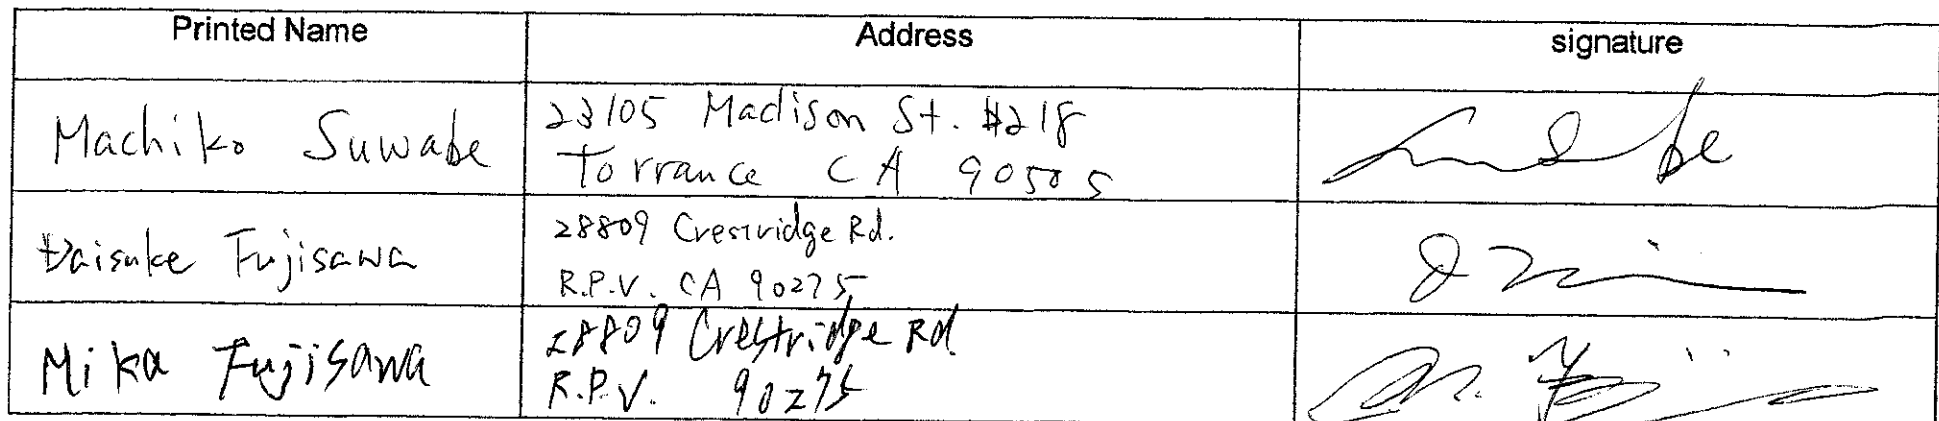 Printed Name Address signature
Machiko Suwabe
23105 Madison St. #218
Torrance CA 90505
Daisuke Fujisawa
28809 Crestridge Rd.
R.P.V. CA 90275
Mika Fujisawa
28809 Crestridge Rd.
R.P.V. 90275